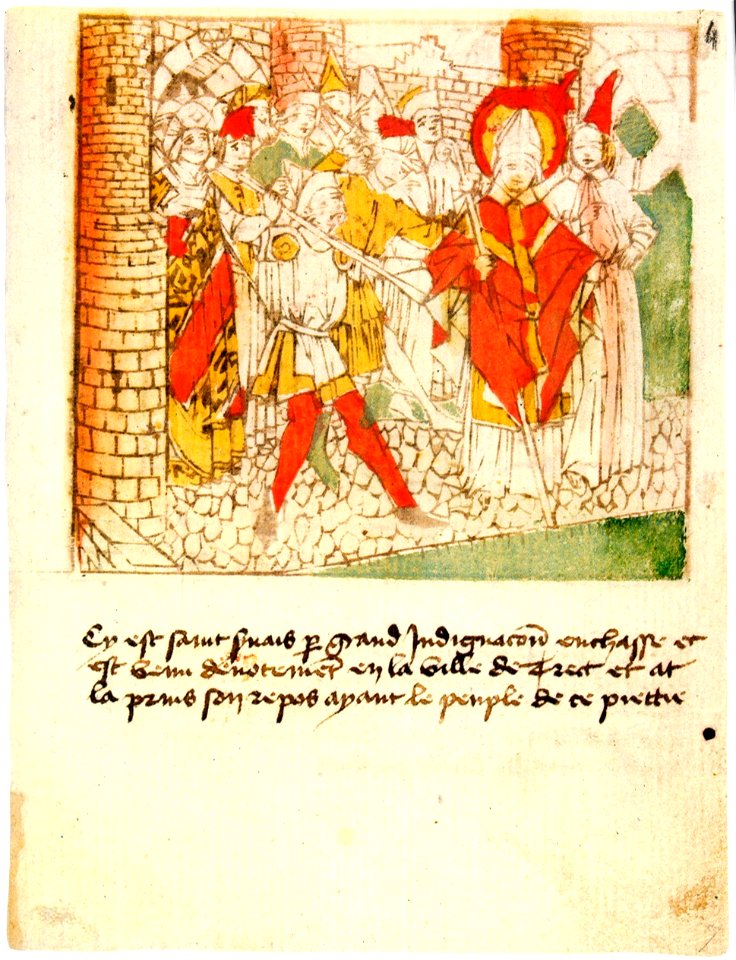 4
Cy est saint servais p̄ grand Indignacoñ enchasse et
est venu devotemẽt en la ville de Trect et at
la prins son repos ayant le peuple de ce piettie